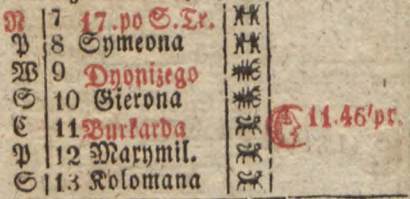 N 7 17. po S. Tr.
P 8 Symeona
W 9 Dyonizego
S 10 Gierona
C 11 Burkarda 11.46' pr.
P 12 Maxymil.
S 13 Kolomana